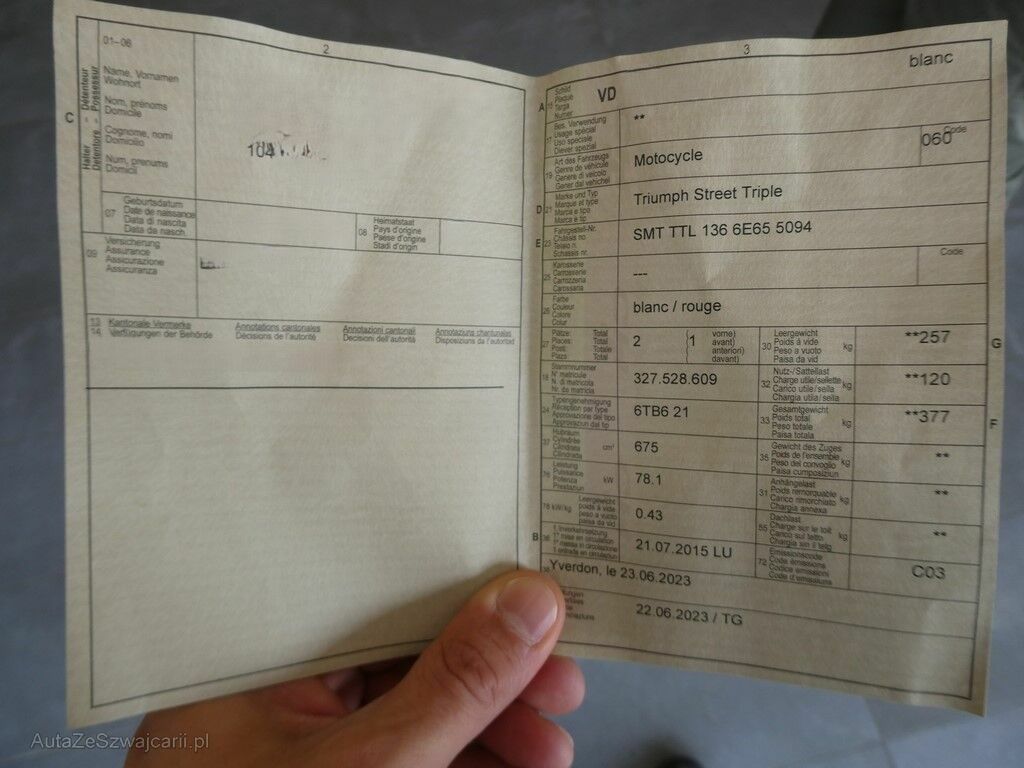 2
01–06
Name, Vornamen
Wohnort
Nom, prénoms
Domicile
Cognome, nomi
Domicilio
Num, prenums
Domicil
C
Halter - Détenteur
Detentore - Possessur
104
07
Geburtsdatum
Date de naissance
Data di nascita
Data da nasch.
08
Heimatstaat
Pays d'origine
Paese d'origine
Stadi d'origin
09
Versicherung
Assurance
Assicurazione
Assicuranza
13
14
Kantonale Vermerke
Verfügungen der Behörde
Annotations cantonales
Décisions de l'autorité
Annotazioni cantonali
Decisioni dell'autorità
Annotaziuns chantunalas
Disposiziuns da l'autoritad
3
blanc
A 15 Schild
Plaque
Targa
Numer
VD
17 Bes. Verwendung
Usage spécial
Uso speciale
Diever spezial
**
19 Art des Fahrzeugs
Genre de véhicule
Genere di veicolo
Gener dal vehichel
Motocycle
Code
060
D 21 Marke und Typ
Marque et type
Marca e tipo
Marca e tip
Triumph Street Triple
E 23 Fahrgestell-Nr.
Châssis no
Telaio n.
Schassis nr.
SMT TTL 136 6E65 5094
25 Karosserie
Carrosserie
Carrozzeria
Carossaria
---
Code
26 Farbe
Couleur
Colore
Colur
blanc / rouge
27 Plätze: Total
Places: Total
Posti: Totale
Plazs: Total
2
(1 vorne)
avant)
anteriori)
davant)
30 Leergewicht
Poids à vide
Peso a vuoto
Paisa da vid
kg
**257
G
18 Stammnummer
N° matricule
N. di matricola
Nr. da matricla
327.528.609
32 Nutz-/Sattellast
Charge utile/sellette
Carico utile/sella
Chargia utila/sella
kg
**120
24 Typengenehmigung
Réception par type
Approvazione del tipo
Approvaziun dal tip
6TB6 21
33 Gesamtgewicht
Poids total
Peso totale
Paisa totala
kg
**377
F
37 Hubraum
Cylindrée
Cilindrata
Cilindrada
cm³
675
35 Gewicht des Zuges
Poids de l'ensemble
Peso del convoglio
Paisa cumposiziun
kg
**
76 Leistung
Puissance
Potenza
Prestaziun
kW
78.1
31 Anhängelast
Poids remorquable
Carico rimorchiato
Chargia annexa
kg
**
78 kW/kg
Leergewicht
poids à vide
peso a vuoto
paisa da vid
0.43
55 Dachlast
Charge sur le toit
Carico sul tetto
Chargia sin il tetg
kg
**
B 36 1. Inverkehrsetzung
1re mise en circulation
1a messa in circolazione
1 entrada en circulaziun
21.07.2015 LU
72 Emissionscode
Code émissions
Codice emissioni
Code d'emissiuns
C03
Yverdon, le 23.06.2023
22.06.2023 / TG
AutaZeSzwajcarii.pl